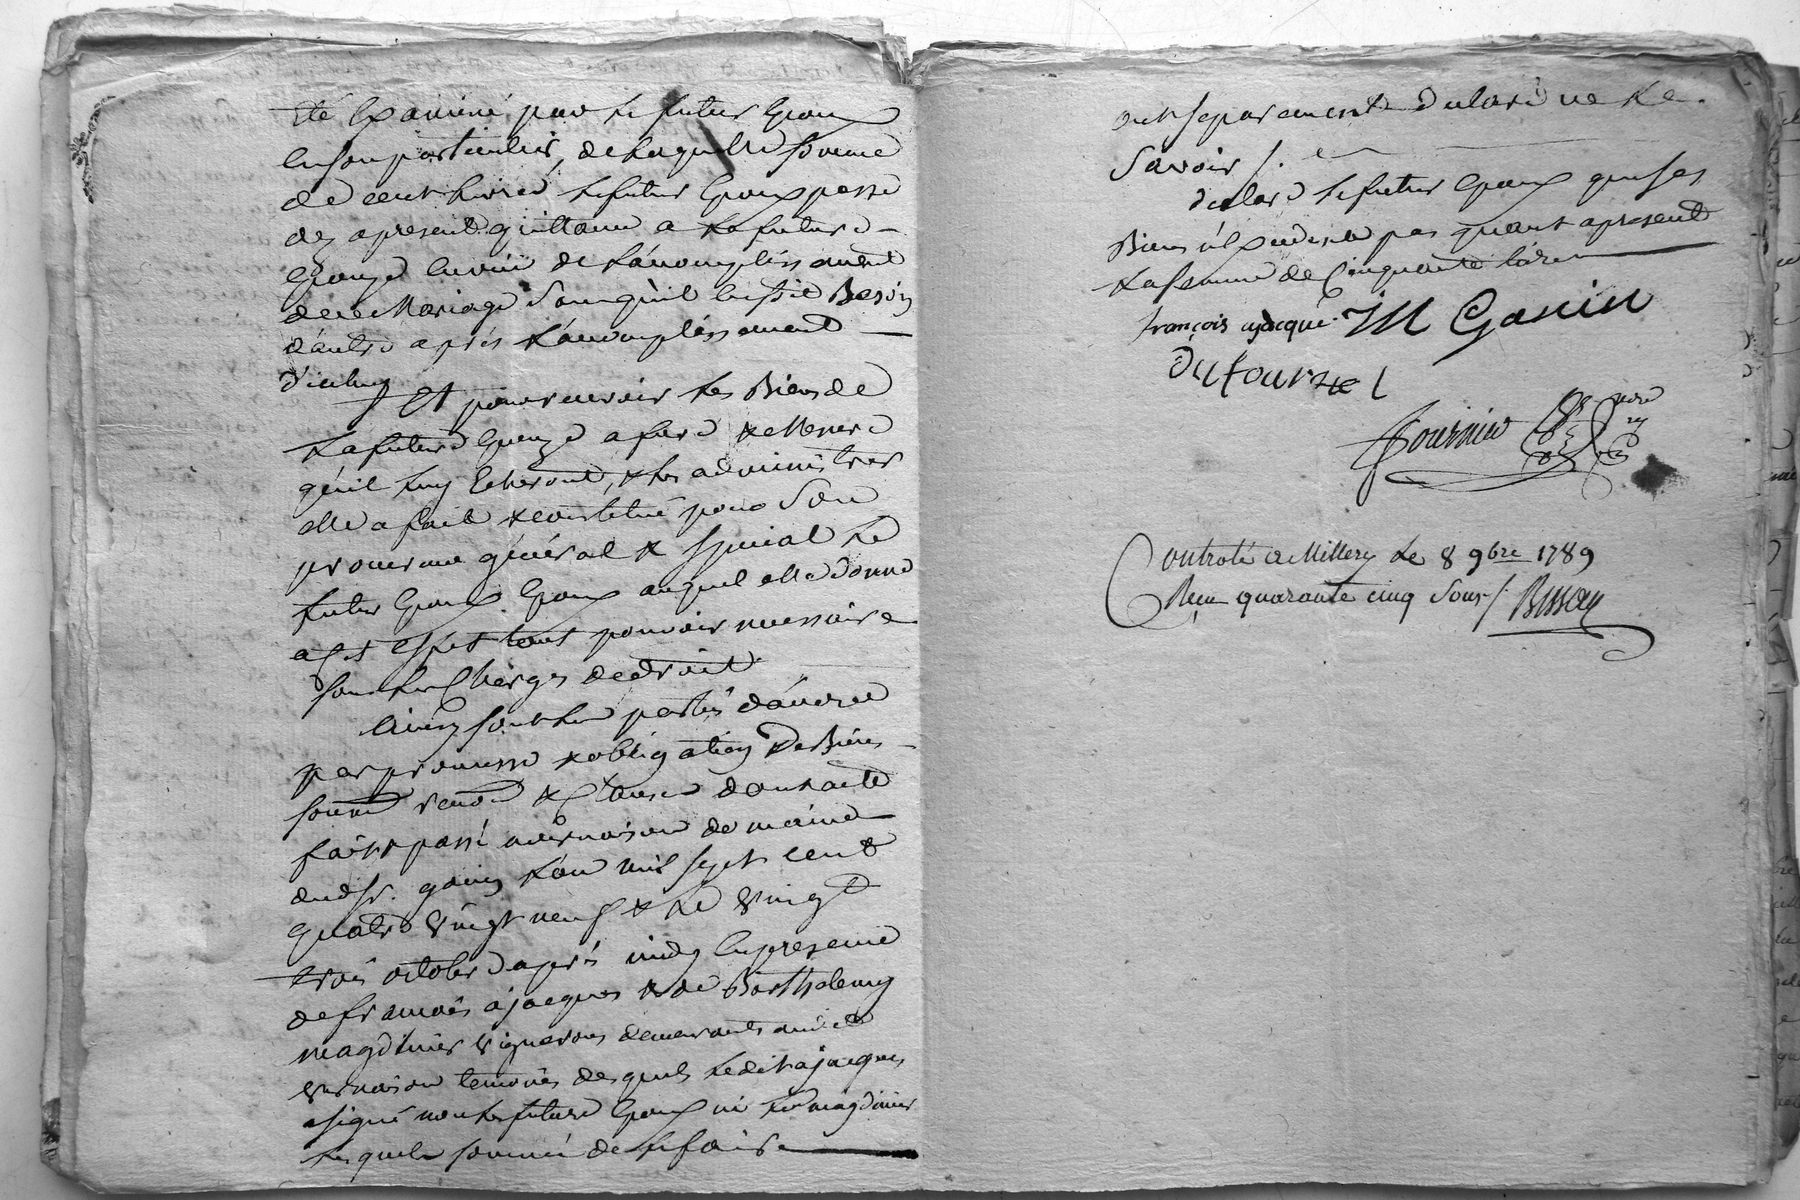 été examiné par le futur Epoux
en son particulier, de laquelle somme
de cent livres le futur Epoux passe
dez apresent quittance a la future
Epouze en vüe de l'accomplissement
de ce Mariage sans qu'il en soit Besoin
d'autre après l'accomplissement
d'iceluy
Et pour recevoir les Biens de
la future Epouze a fure & a Mesure
qu'il luy Echeront, & les administrer
elle a fait & constitué pour Son
procureur général & spécial le
futur Epoux auquel elle donne
a cet effet tout pouvoir necessaire
sous les Charges de droit
Ainsy sont les parties d'accord
par promesse & obligation De Biens
soumis renon & Clauses dont acte
fait & passé a vernaison de maison
dud sr. gonin l'an mil sept cent
quatre vingt neuf & le vingt
trois octobre après midy En presence
de françois ajacques & de Barthelemy
magdinier vignerons demeurants aud
vernaison temoins desquels ledit ajacques
a signé non le future Epoux ni led magdinier
lesquels sommé de le faire
ont separement declaré ne le
Savoir /.
declare le futur Epoux que ses
Biens n'Excedent pas quant apresent
la somme de Cinquante livres
françois ajacque M Gonin
dufournel
Fournier
Controlé a Millery le 8 9bre 1789
Reçu quarante cinq Sous /. Bisson